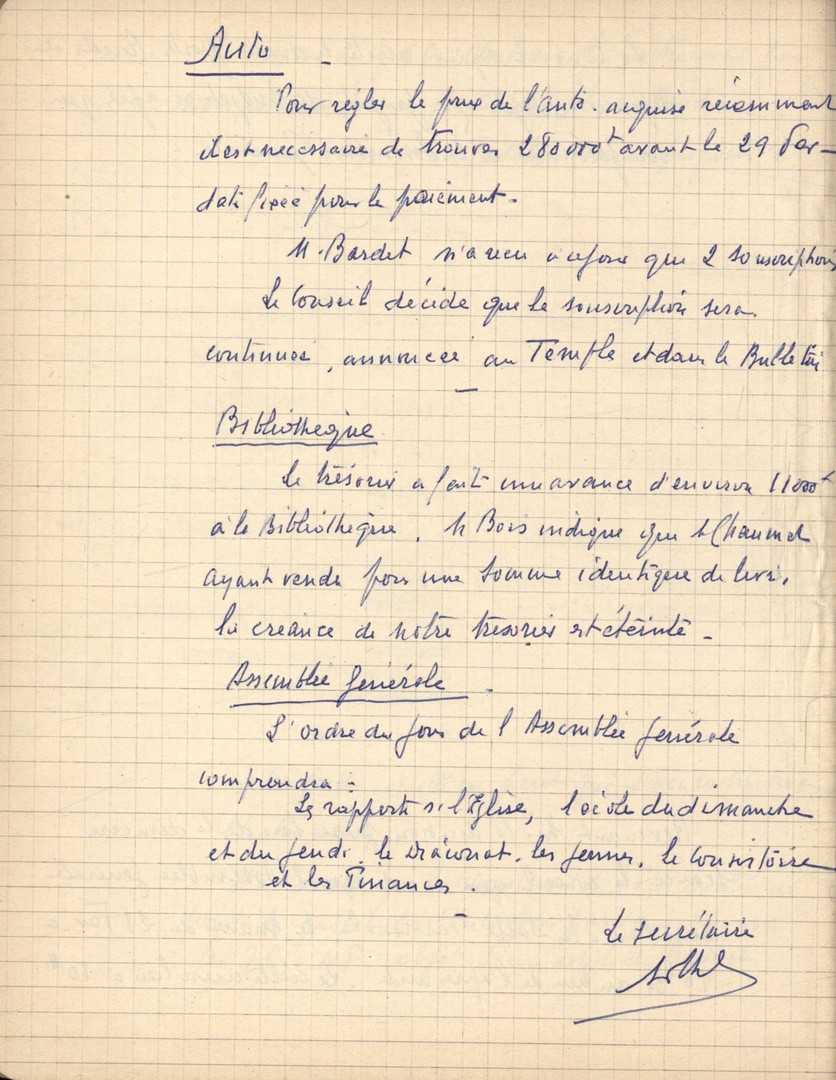 Auto -
Pour régler le prix de l'auto acquise récemment
il est nécessaire de trouver 280000f avant le 29 Fev -
date fixée pour le paiement.
M. Bardet n'a reçu à ce jour que 2 souscriptions
Le Conseil décide que la souscription sera
continuée, annoncée au Temple et dans le Bulletin
Bibliothèque
Le trésorier a fait une avance d'environ 11000f
à la Bibliothèque. M Bois indique que M Chaumet
ayant vendu pour une somme identique de livres,
la créance de notre trésorier est éteinte -
Assemblée Générale -
L'ordre du jour de l'Assemblée Générale
comprendra :
Les rapports s. l'Eglise, l'école du dimanche
et du jeudi, le Diaconat, les jeunes, le Consistoire
et les Finances.
Le secrétaire